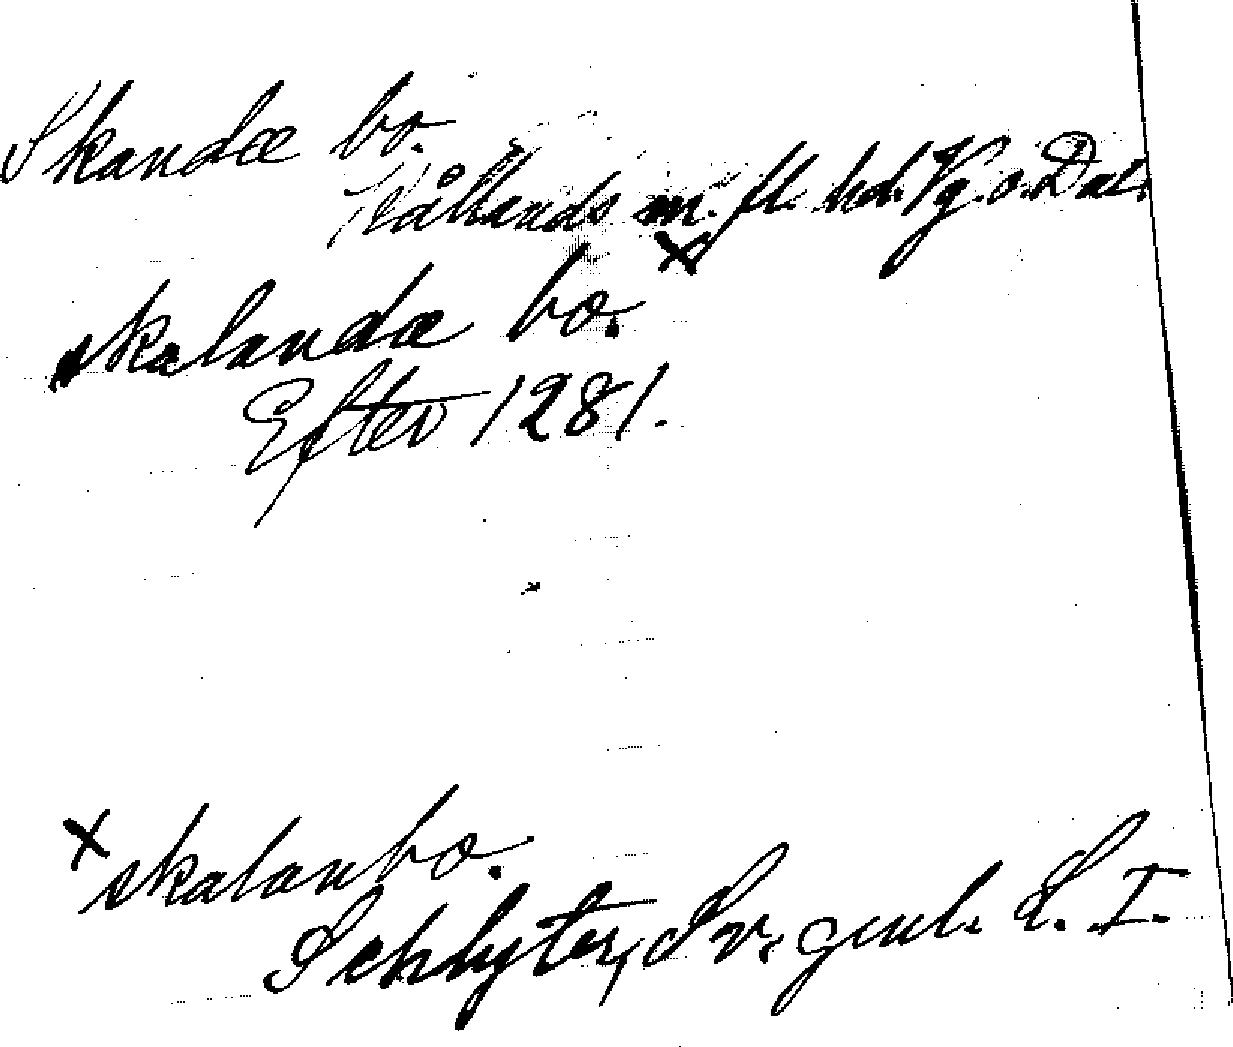 Skandæ bo.
Kållands m. fl. hd. Vg. o. Dal.
skalandæ bo. x
Efter 1281.
x skalanbo.
Schlyter, Sv. gml. L. I.